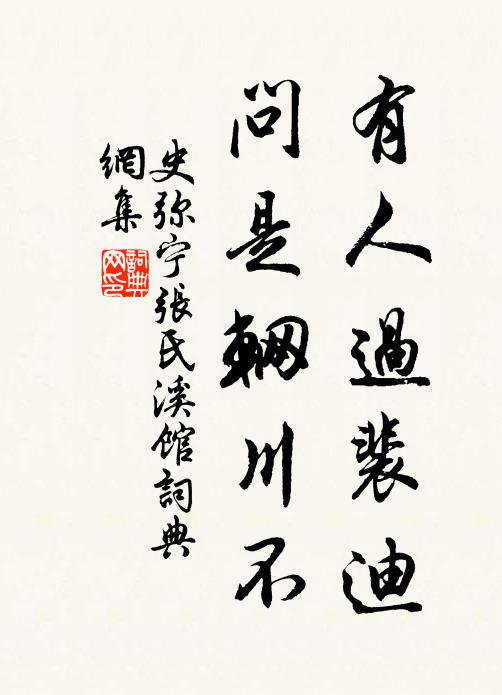 有人過裴迪
問是輞川不
史弥宁張氏溪馆詞典
網集
詞典
网印